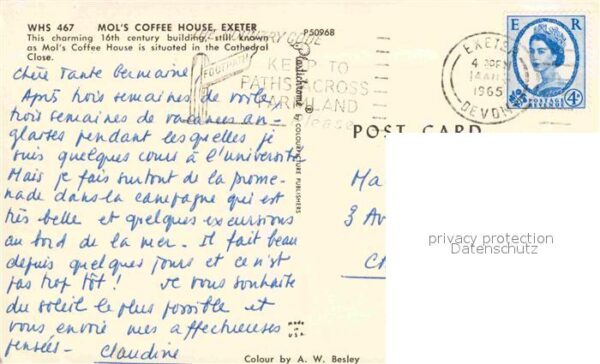 WHS 467 MOL'S COFFEE HOUSE, EXETER P50968
This charming 16th century building, still known
as Mol's Coffee House is situated in the Cathedral
Close.
COUNTRY CODE
FOOTPATH
KEEP TO
PATHS ACROSS
FARMLAND
Please
EXETER
4 30PM
1965
DEVON
E R
POSTAGE REVENUE
4D
Plastichrome ®
BY COLOURPICTURE PUBLISHERS
POST CARD
Chère Tante Germaine
Après trois semaines de voile,
trois semaines de vacances an-
glaises pendant lesquelles je
suis quelques cours à l'université
Mais je fais surtout de la prome-
nade dans la campagne qui est
très belle et quelques excursions
au bord de la mer. Il fait beau
depuis quelques jours et ce n'est
pas trop tôt! Je vous souhaite
du soleil le plus possible et
vous envoie mes affectueuses
pensées - Claudine
Ma
3 Av
privacy protection
Datenschutz
made in
U.S.A.
Colour by A. W. Besley